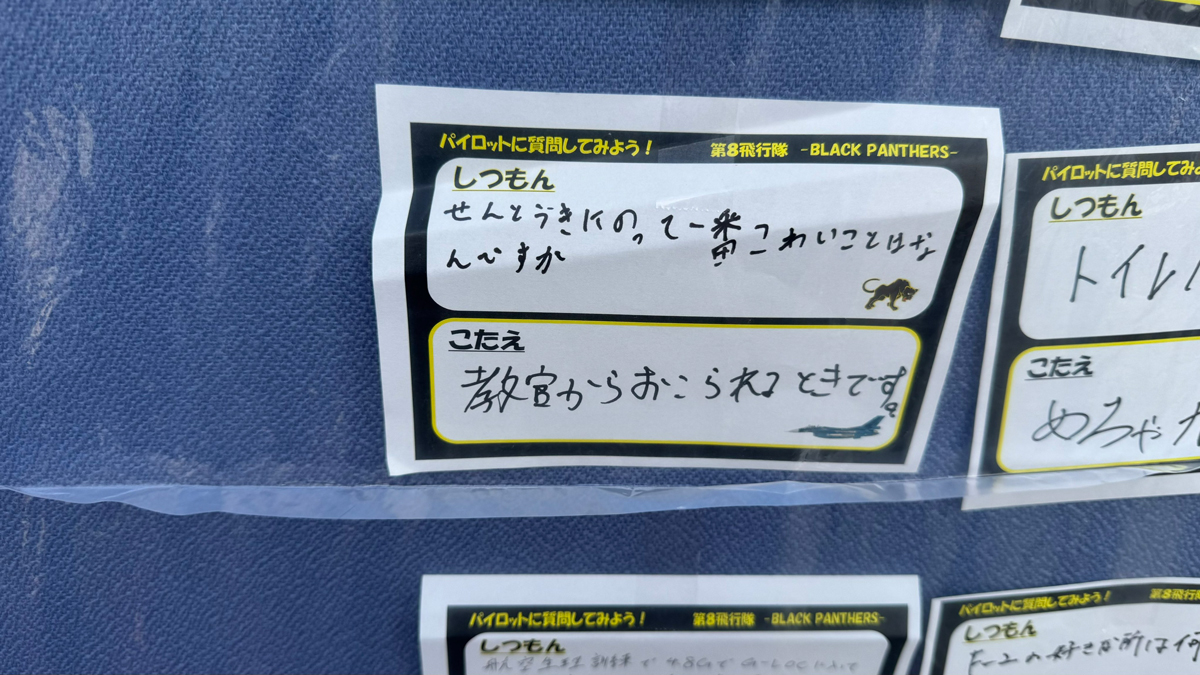 パイロットに質問してみよう! 第8飛行隊 -BLACK PANTHERS-
しつもん
せんとうきにのって一番こわいことはな
んですか
こたえ
教官からおこられるときです。
パイロットに質問してみよ
しつもん
トイレ
こたえ
めちゃ
パイロットに質問してみよう! 第8飛行隊 -BLACK PANTHERS-
しつもん
パイロットに質問してみよう! 第8飛行隊
しつもん
F-2の好きな所は何